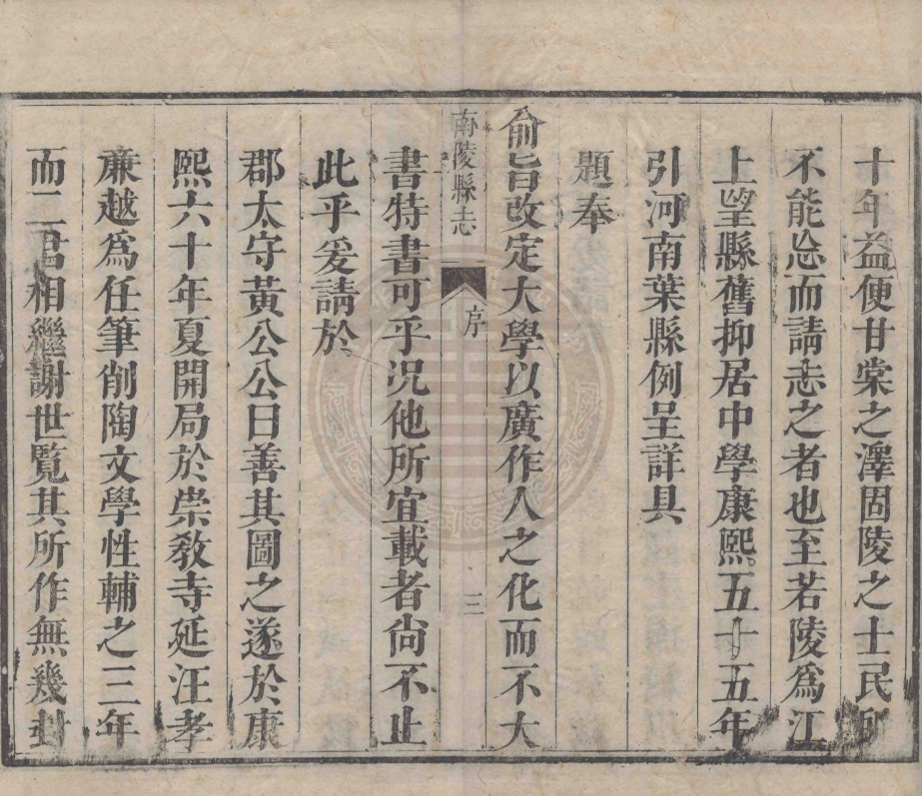 十年益便甘棠之澤固陵之士民所
不能忘而請志之者也至若陵爲江
上望縣舊抑居中學康熙五十五年
引河南葉縣例呈詳具
題奉
俞旨改定大學以廣作人之化而不大
南陵縣志 序 三
書特書可乎況他所宜載者尙不止
此乎爰請於
郡太守黃公公曰善其圖之遂於康
熙六十年夏開局於崇敎寺延汪孝
廉越爲任筆削陶文學性輔之三年
而二君相繼謝世覽其所作無幾封